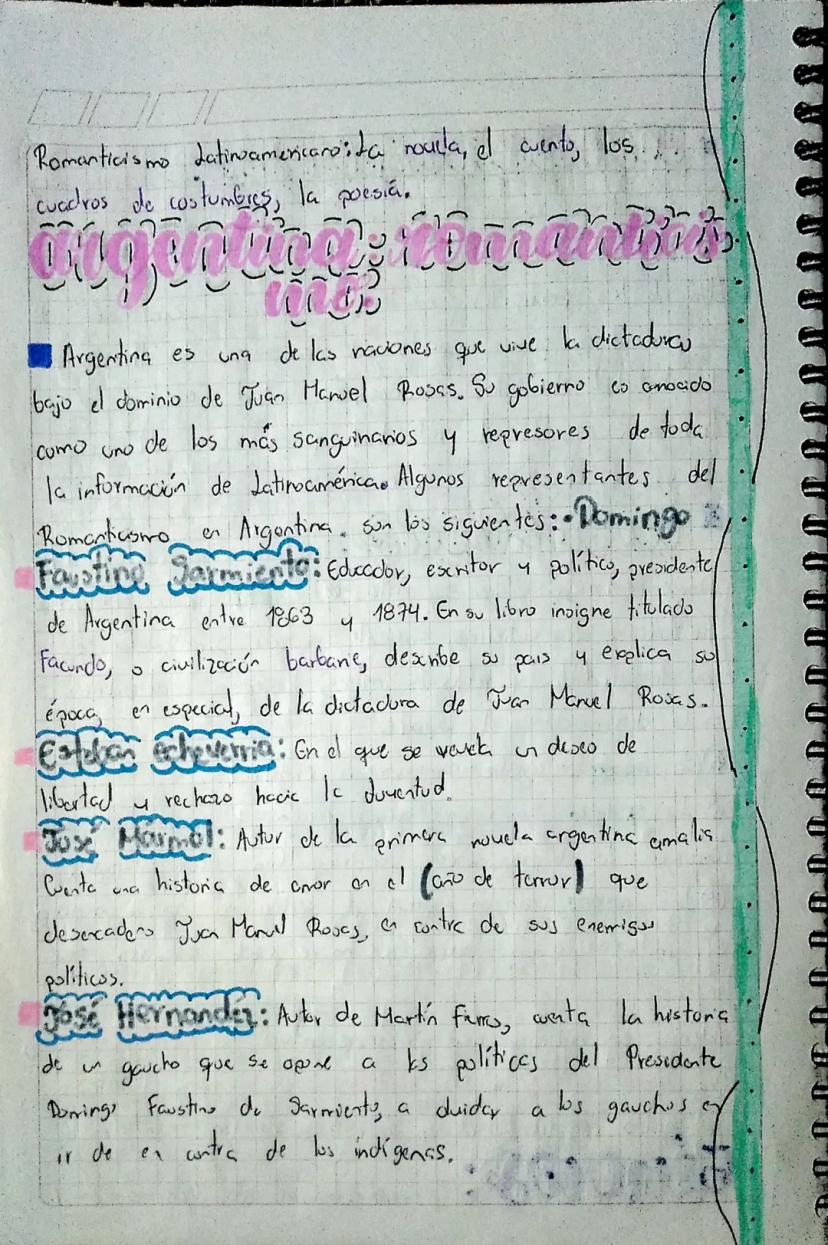 Romanticismo Latinoamericano: La novela, el cuento, los
cuadros de costumbres, la poesía.
argentina: romanticis
mo:
Argentina es una de las naciones que vive la dictadura
bajo el dominio de Juan Manuel Rosas. Su gobierno es conocido
como uno de los más sanguinarios y represores de toda
la información de Latinoamérica. Algunos representantes del
Romanticismo en Argentina. son los siguientes: • Domingo
Faustino Sarmiento: Educador, escritor y político, presidente
de Argentina entre 1863 y 1874. En su libro insigne titulado
Facundo, o civilización barbarie, describe su pais y explica su
época, en especial, de la dictadura de Juan Manuel Rosas.
Esteban echeverria: En el que se un deseo de
libertad y rechazo hacia la Juventud.
José Marmol: Autor de la primera novela argentina amalia
Cuenta una historia de amor en el (año de terror) que
desencadeno Juan Manuel Rosas, en contra de sus enemigos
políticos.
José Hernandez: Autor de Martín Fierro, cuenta la historia
de un gaucho que se opone a las políticas del Presidente
Domingo Faustino de Sarmiento, a a los gauchos
ir de en contra de los indígenas.